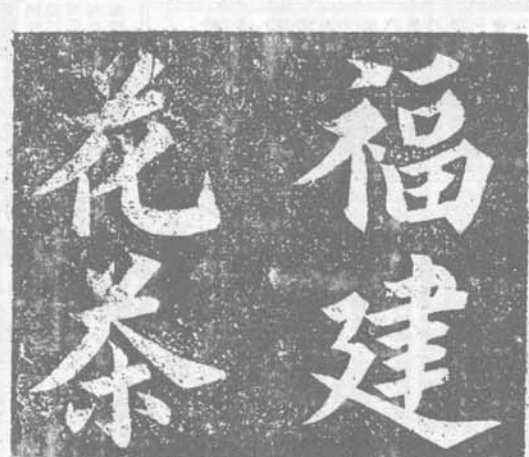 福建
花茶